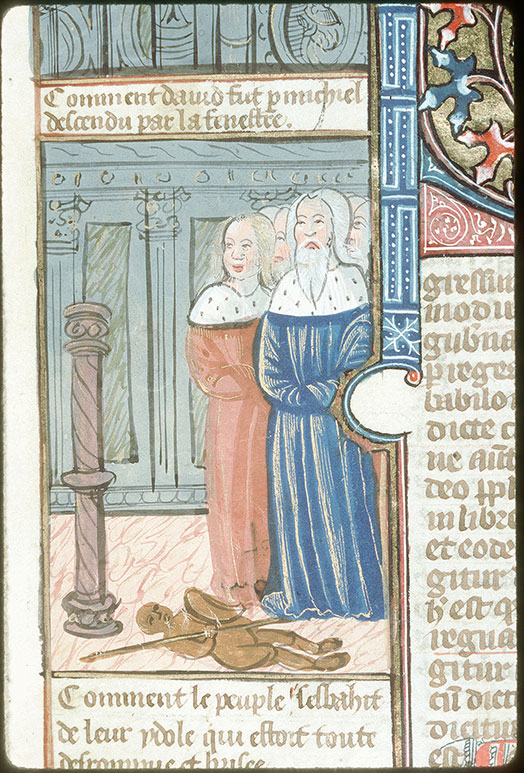 Comment dauid fut p michiel
descendu par la fenestre.
Comment le peuple sesbahit
de leur ydole qui estoit toute
desrompue et brisee
gressiu
modu
gubna
p reges
babilo
dicte c
ne aut
deo ppl
in libro
et eode
gitur
h est q
irgua
gitur
cu dict
dicitu
est